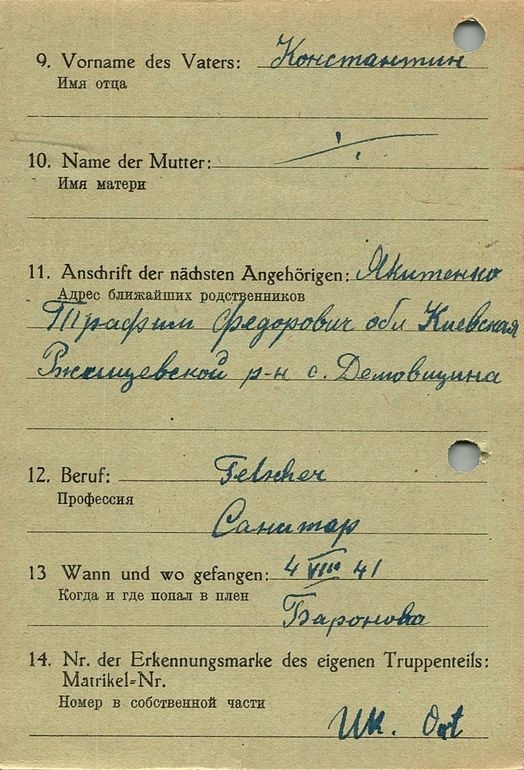 9. Vorname des Vaters: Константин
Имя отца
10. Name der Mutter:
Имя матери
11. Anschrift der nächsten Angehörigen: Якитенко
Адрес ближайших родственников
Трафим Федорович обл Киевская
Ржищевской р-н с. Демовщина
12. Beruf: Felscher
Профессия
Санитар
13 Wann und wo gefangen: 4 VIII 41
Когда и где попал в плен
Баронова
14. Nr. der Erkennungsmarke des eigenen Truppenteils:
Matrikel-Nr.
Номер в собственной части
Uk.